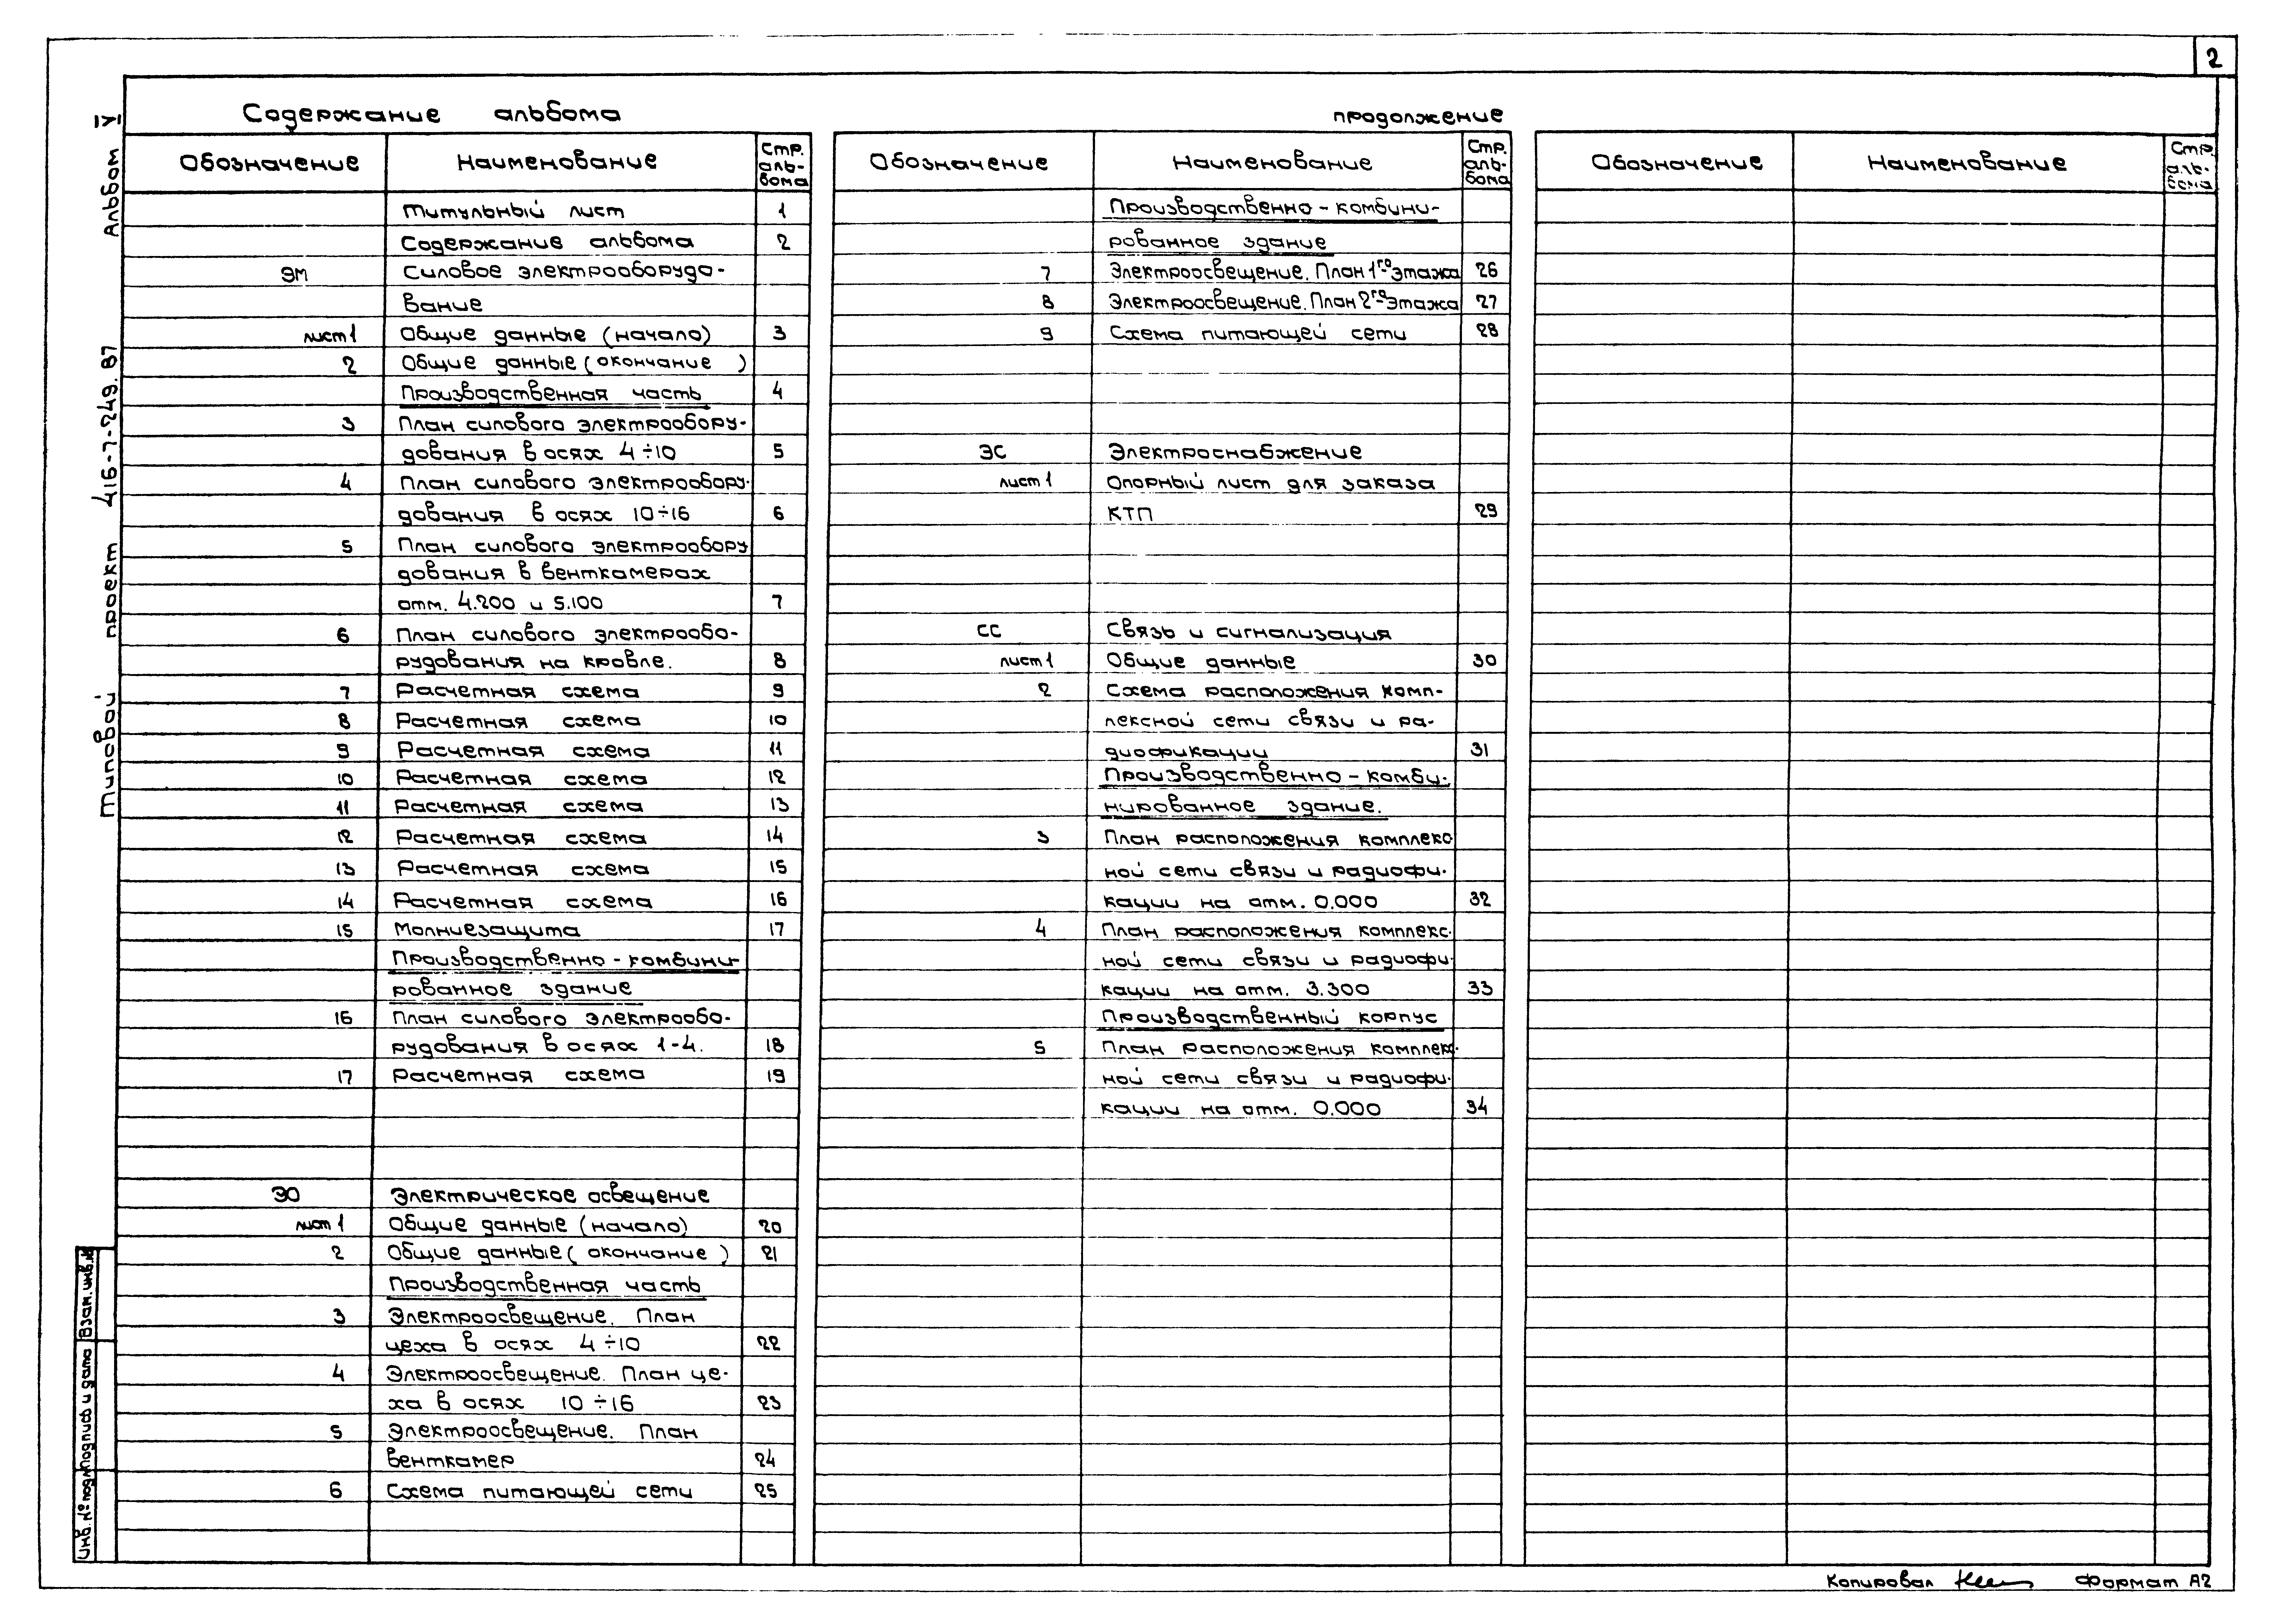 2
Содержание альбома
продолжение
Обозначение Наименование Стр. аль- бома
Титульный лист 1
Содержание альбома 2
ЭМ Силовое электрооборудо-
вание
лист 1 Общие данные (начало) 3
2 Общие данные (окончание )
Производственная часть 4
3 План силового электрообору-
дования в осях 4÷10 5
4 План силового электрообору-
дования в осях 10÷16 6
5 План силового электрообору
дования в венткамерах
отм. 4.200 и 5.100 7
6 План силового электрообо-
рудования на кровле. 8
7 Расчетная схема 9
8 Расчетная схема 10
9 Расчетная схема 11
10 Расчетная схема 12
11 Расчетная схема 13
12 Расчетная схема 14
13 Расчетная схема 15
14 Расчетная схема 16
15 Молниезащита 17
Производственно-комбини-
рованное здание
16 План силового электрообо-
рудования в осях 1-4. 18
17 Расчетная схема 19
ЭО Электрическое освещение
лист 1 Общие данные (начало) 20
2 Общие данные (окончание) 21
Производственная часть
3 Электроосвещение. План
цеха в осях 4÷10 22
4 Электроосвещение. План це-
ха в осях 10÷16 23
5 Электроосвещение. План
венткамер 24
6 Схема питающей сети 25
Обозначение Наименование Стр. аль- бома
Производственно-комбини-
рованное здание
7 Электроосвещение. План 1го этажа 26
8 Электроосвещение. План 2го этажа 27
9 Схема питающей сети 28
ЭС Электроснабжение
лист 1 Опорный лист для заказа
КТП 29
СС Связь и сигнализация
лист 1 Общие данные 30
2 Схема расположения комп-
лексной сети связи и ра-
диофикации 31
Производственно-комби-
нированное здание.
3 План расположения комплекс
ной сети связи и радиофи-
кации на отм. 0.000 32
4 План расположения комплекс-
ной сети связи и радиофи-
кации на отм. 3.300 33
Производственный корпус
5 План расположения комплекс-
ной сети связи и радиофи-
кации на отм. 0.000 34
Обозначение Наименование Стр. аль- бома
Типовой проект 416-7-249.87 Альбом IV
Инв. № подл Подпись и дата Взам. инв. №
Копировал Формат А2